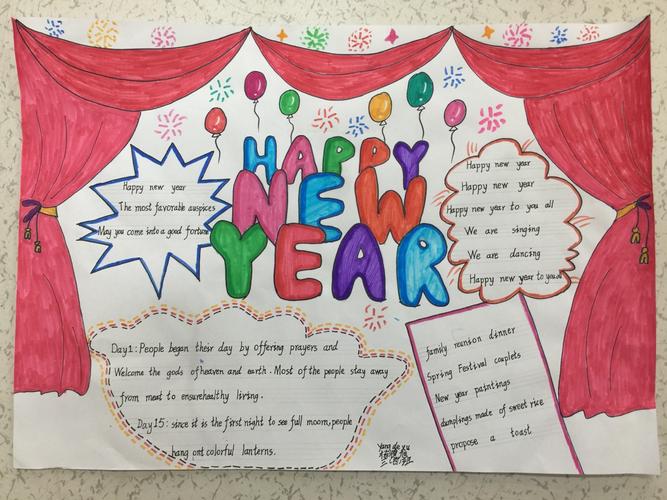 HAPPY
NEW
YEAR
Happy new year
The most favorable auspices
May you come into a good fortune
Happy new year
Happy new year
Happy new year to you all
We are singing
We are dancing
Happy new year to you all
Day1: People began their day by offering prayers and
Welcome the gods of heaven and earth. Most of the people stay away
from meat to ensurehealthy living.
Day15: since it is the first night to see full moorn, people
hang ont colorful lanterns.
family reunion dinner
Spring Festival couplets
New year paintings
dumplings made of sweet rice
propose a toast
Yang de xu